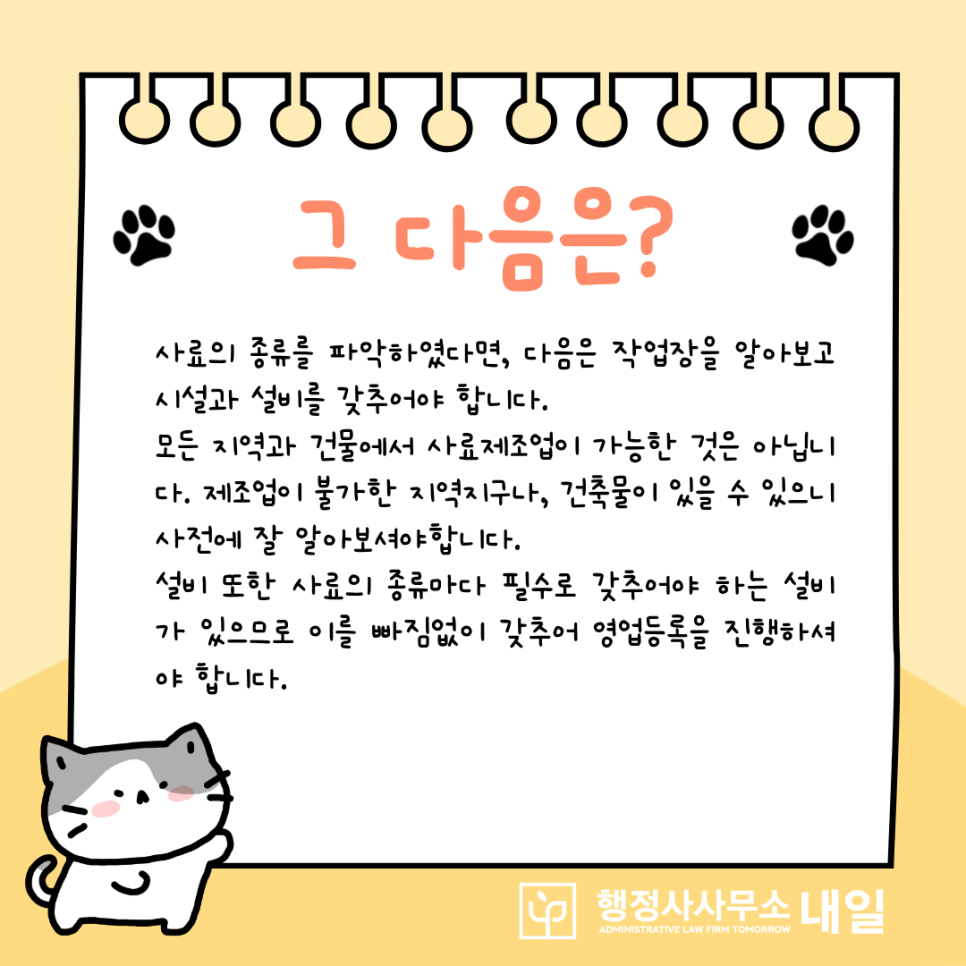 그 다음은?
사료의 종류를 파악하였다면, 다음은 작업장을 알아보고
시설과 설비를 갖추어야 합니다.
모든 지역과 건물에서 사료제조업이 가능한 것은 아닙니
다. 제조업이 불가한 지역지구나, 건축물이 있을 수 있으니
사전에 잘 알아보셔야합니다.
설비 또한 사료의 종류마다 필수로 갖추어야 하는 설비
가 있으므로 이를 빠짐없이 갖추어 영업등록을 진행하셔
야 합니다.
행정사사무소 내일
ADMINISTRATIVE LAW FIRM TOMORROW